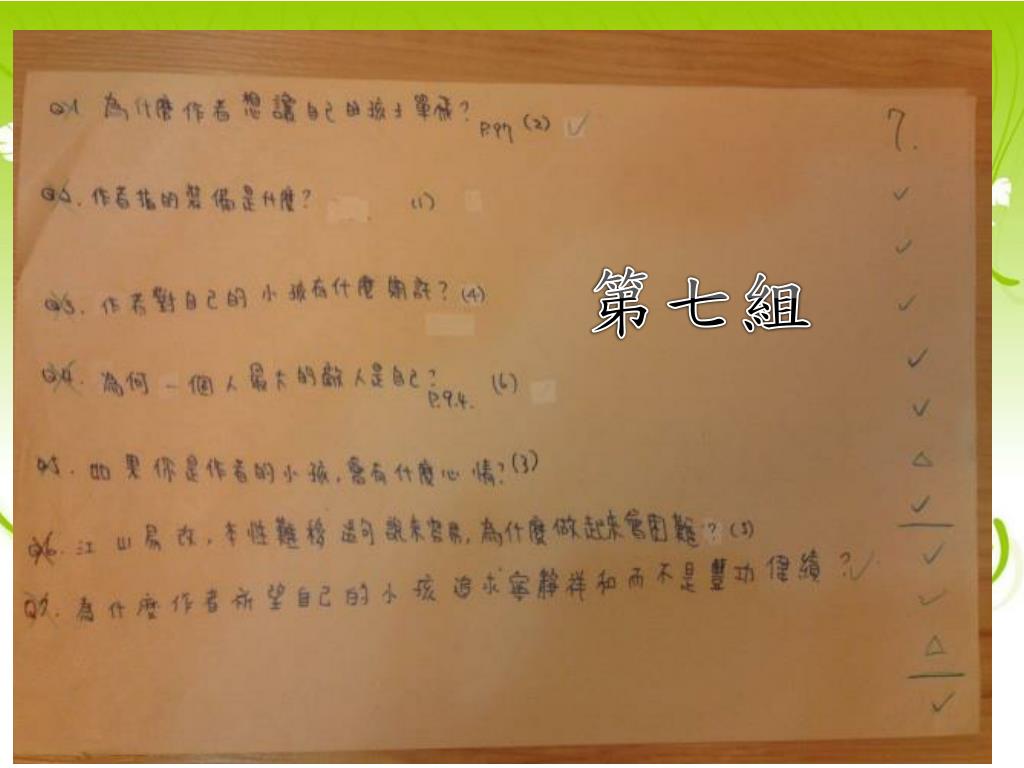 Q1 為什麼作者想讓自己的孩子單飛? P.97 (2) ✓
7.
Q2. 作者指的裝備是什麼? (1)
Q3. 作者對自己的小孩有什麼期許? (4)
第七組
Q4. 為何一個人最大的敵人是自己? P.94. (6)
Q5. 如果你是作者的小孩,會有什麼心情? (3)
Q6. 江山易改,本性難移 這句說來容易,為什麼做起來會困難? (5)
Q7. 為什麼作者祈望自己的小孩追求寧靜祥和而不是豐功偉績? ✓